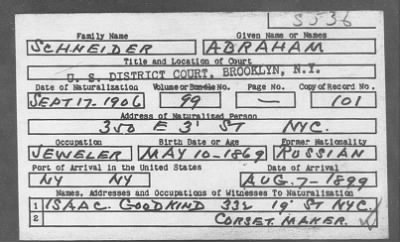 S536
Family Name Given Name or Names
SCHNEIDER ABRAHAM
Title and Location of Court
U. S. DISTRICT COURT, BROOKLYN, N.Y.
Date of Naturalization Volume or Bundle No. Page No. Copy of Record No.
SEPT 17-1906 99 — 101
Address of Naturalized Person
350 E 3' ST NYC.
Occupation Birth Date or Age Former Nationality
JEWELER MAY 10-1869 RUSSIAN
Port of Arrival in the United States Date of Arrival
NY NY AUG. 7-1899
Names, Addresses and Occupations of Witnesses To Naturalization
1 ISAAC GOODKIND 332 19' ST NYC.
2 CORSET MAKER.